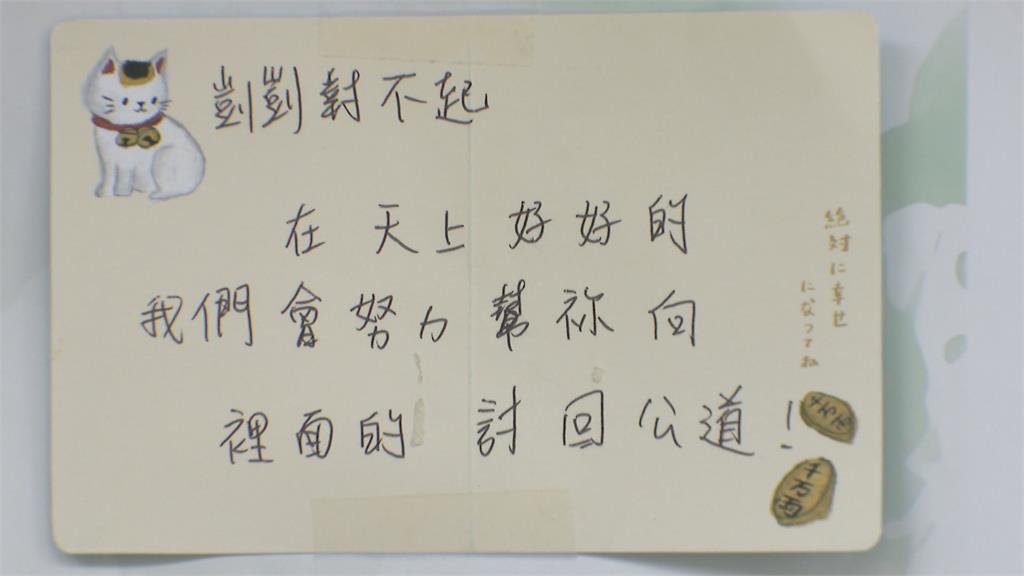 剴剴對不起
在天上好好的
我們會努力幫祢向
裡面的 討回公道！
絶対に幸せ
になってね
千万両
千万両